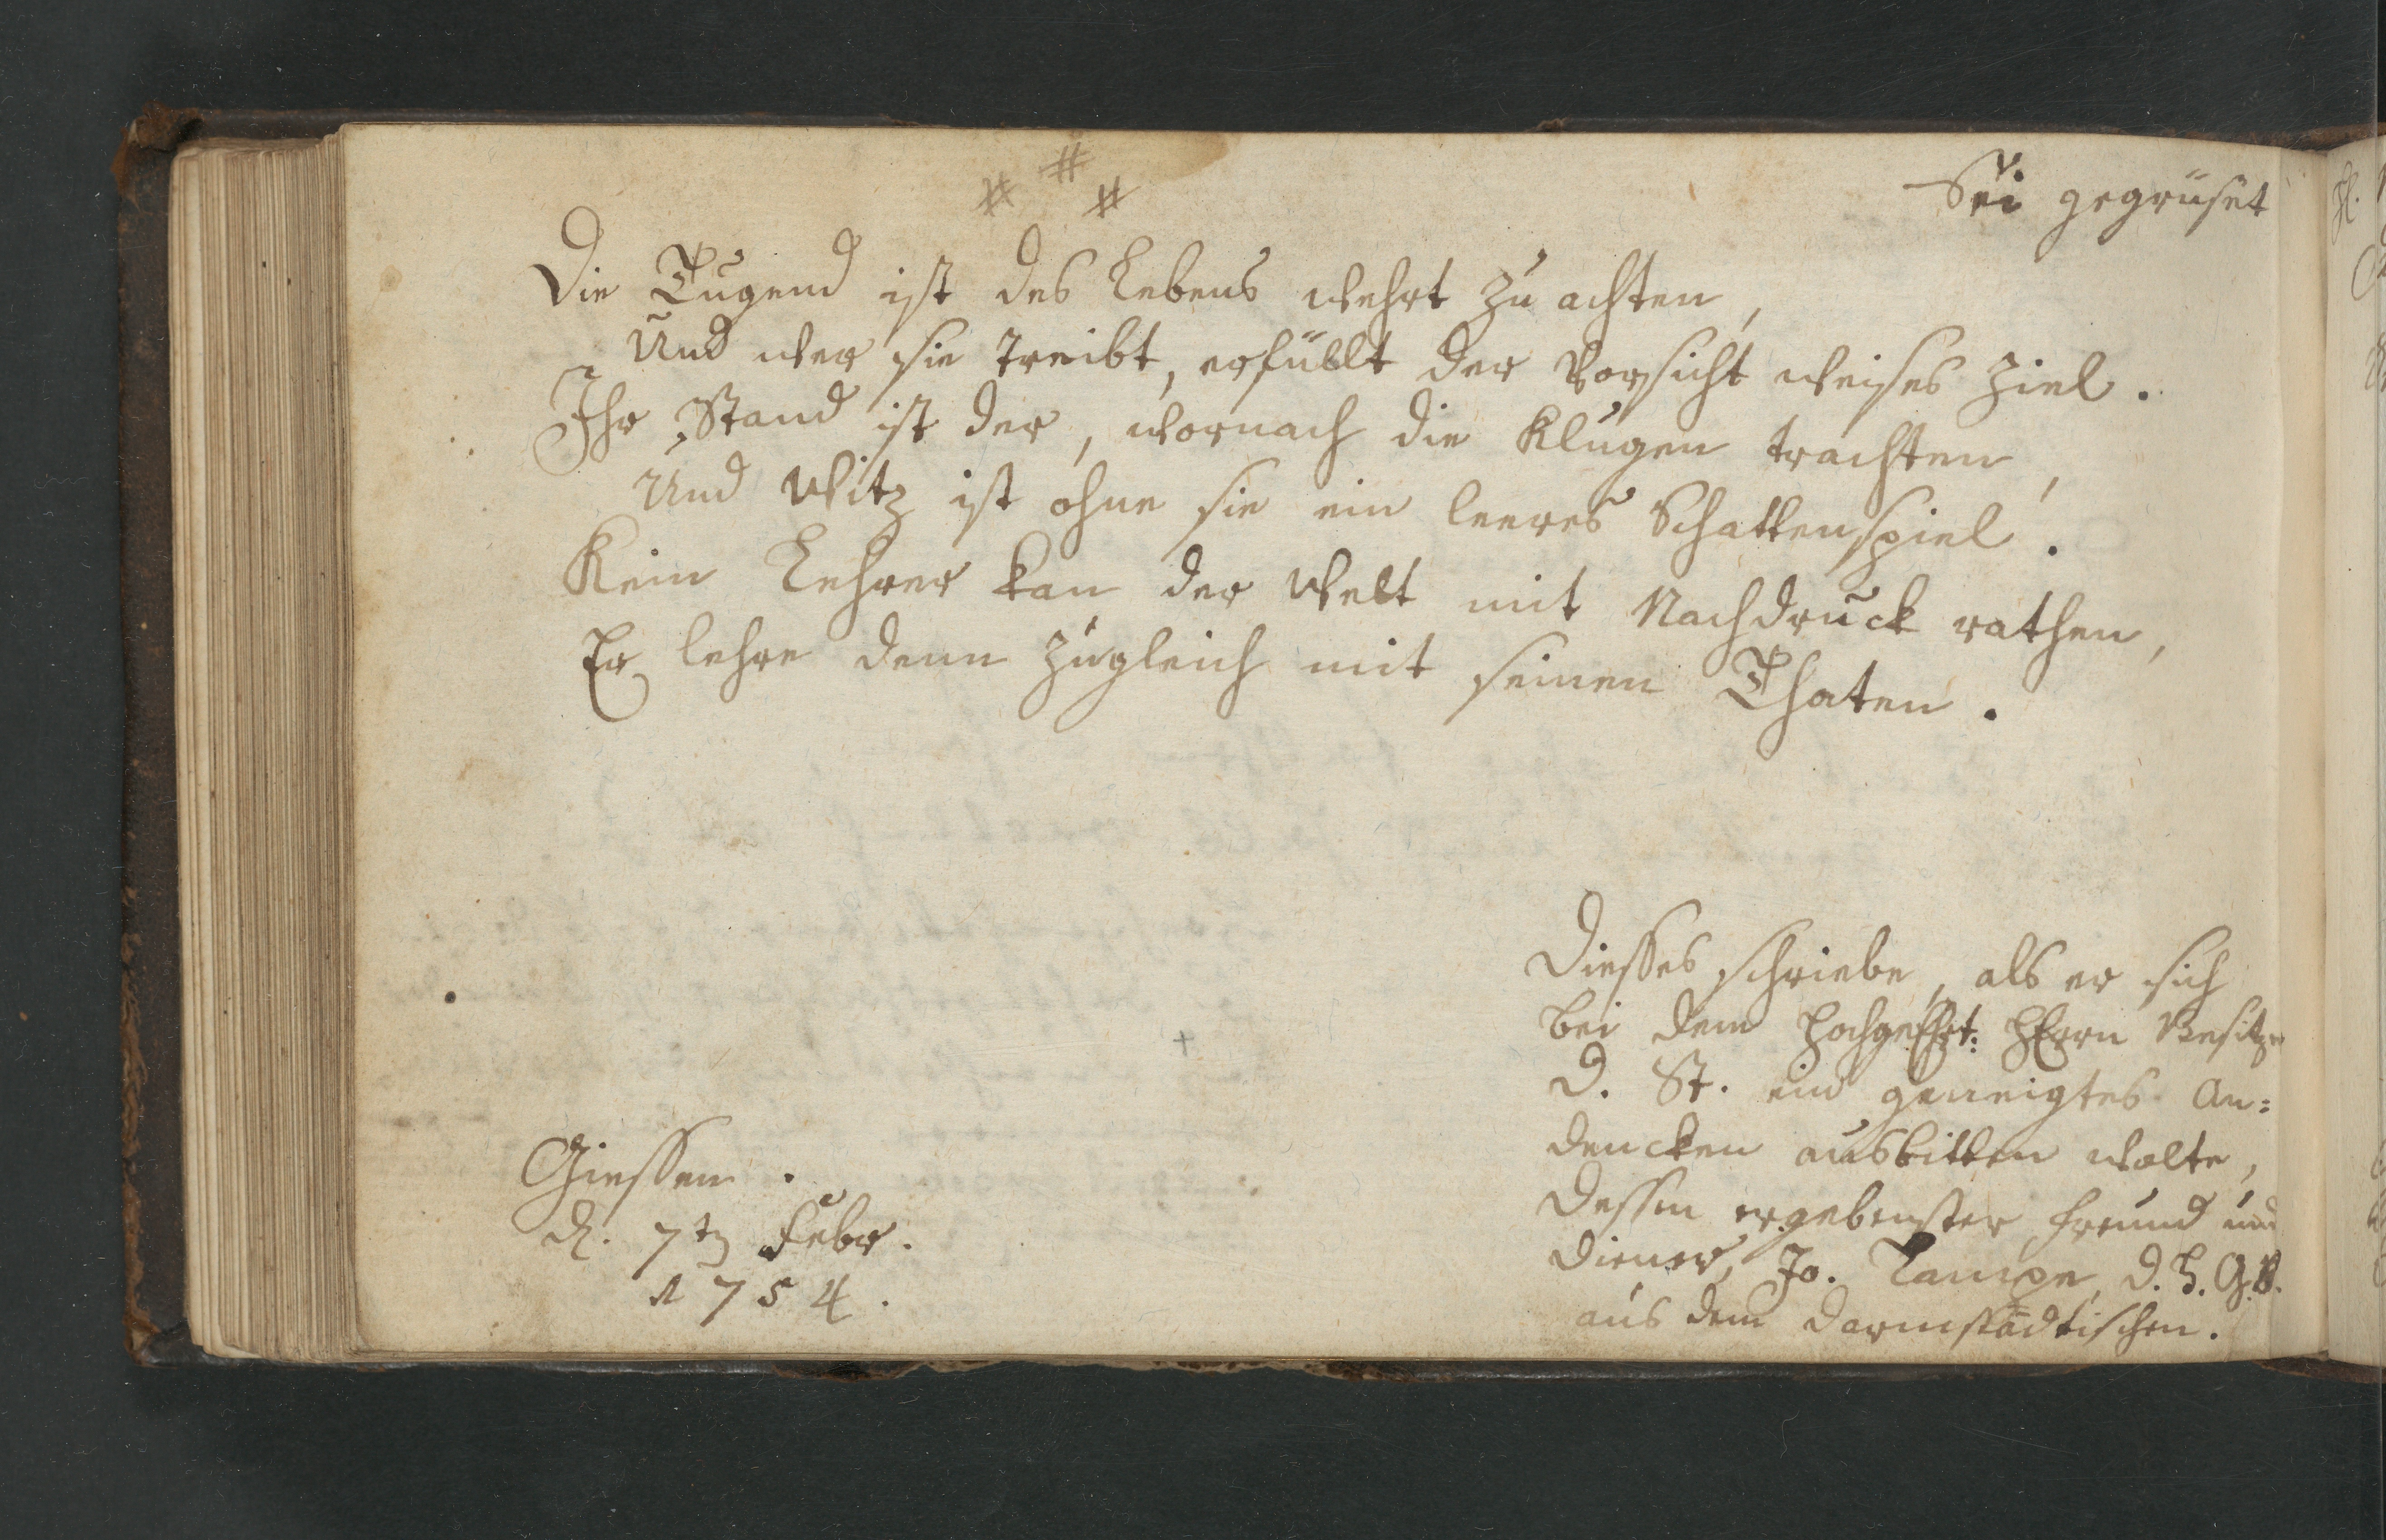 Sei gegrüset
Die Tugend ist des Lebens wehrt zu achten,
Und wer sie treibt, erfüllt der Vorsicht weises Ziel.
Ihr Stand ist der, wornach die Klugen trachten,
Und Witz ist ohne sie ein leeres Schattenspiel.
Kein Lehrer kan der Welt mit Nachdruck rathen,
Er lehre denn zugleich mit seinen Thaten.
Dieses schriebe, als er sich
bei dem Hochgeehrt: HErrn Besitzer
D. St. ein geneigtes An=
dencken ausbitten wolte,
Dessen ergebenster Freund und
Diener, Jo. Lampe, D. H. G. B.
aus dem Darmstädtischen.
Giessen.
d. 7ten Febr.
1754.